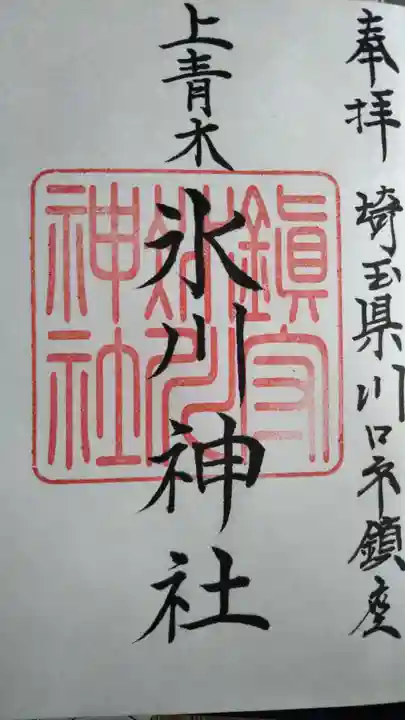 奉拝 埼玉県川口市鎮座
上青木
氷川神社
鎮守
氷川
神社